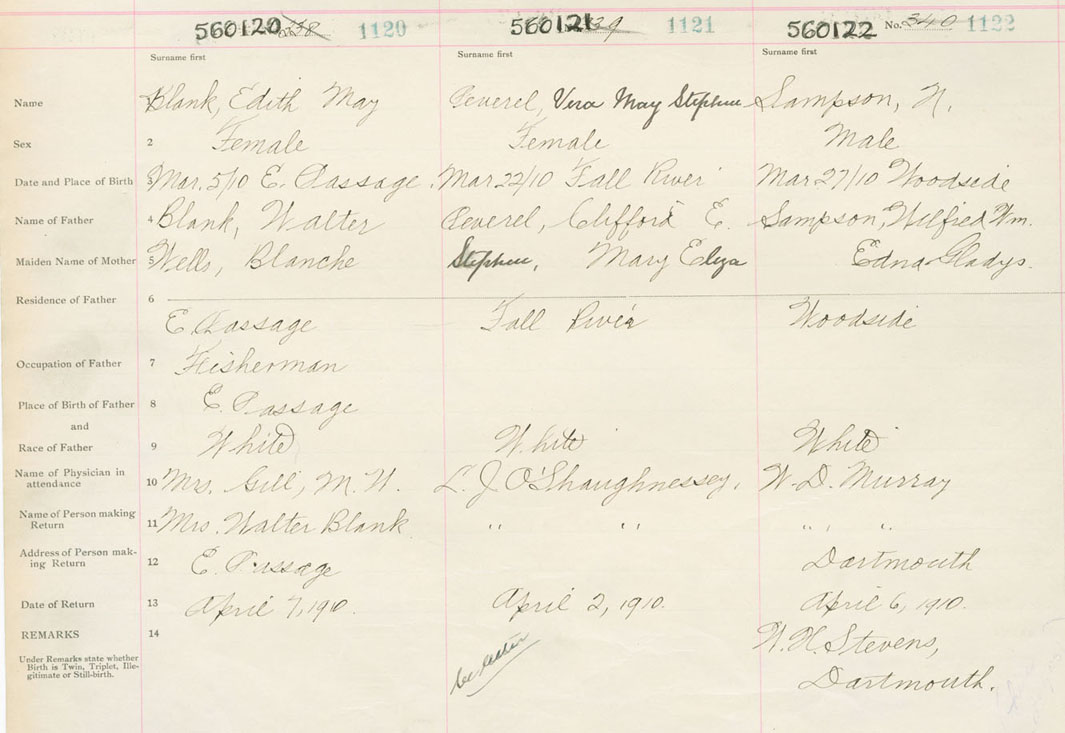 560120 238 1120 560121 39 1121 560122 No. 340 1122
Surname first Surname first Surname first
Name Blank, Edith May Peverel, Vera May Stephen Sampson, N.
Sex 2 Female Female Male
Date and Place of Birth 3 Mar. 5/10 E. Passage. Mar 22/10 Fall River Mar 27/10 Woodside
Name of Father 4 Blank, Walter Peverel, Clifford E. Sampson, Wilfred Wm.
Maiden Name of Mother 5 Wells, Blanche Stephen, Mary Eliza Edna Gladys.
Residence of Father 6
E. Passage Fall River Woodside
Occupation of Father 7 Fisherman
Place of Birth of Father 8 E. Passage
and
Race of Father 9 White White White
Name of Physician in
attendance 10 Mrs. Gill, M. W. L. J O'Shaughnessey. W. D. Murray
Name of Person making
Return 11 Mrs. Walter Blank. " " " "
Address of Person mak-
ing Return 12 E. Passage Dartmouth
Date of Return 13 April 7, 1910. April 2, 1910. April 6, 1910.
REMARKS 14 Stevens,
Under Remarks state whether
Birth is Twin, Triplet, Ille-
gitimate or Still-birth.
Dartmouth.